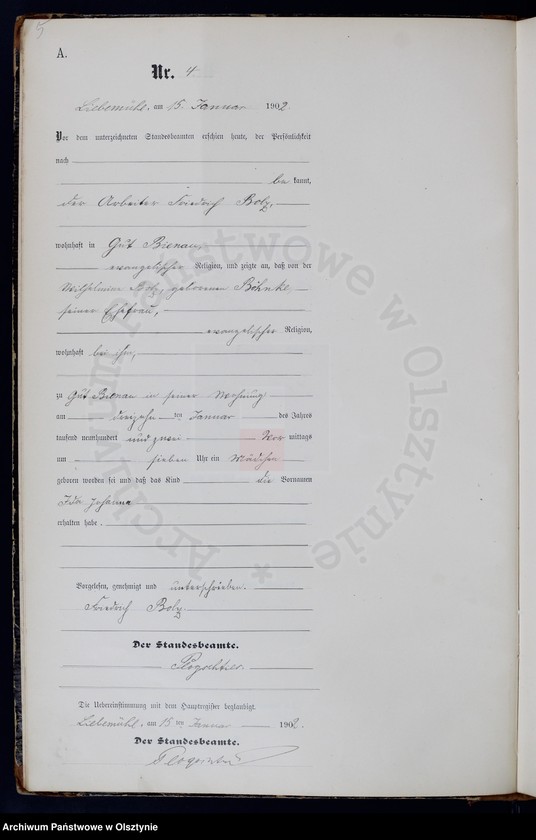 5
A.
Nr. 4
Liebemühl, am 15. Januar 1902
Vor dem unterzeichneten Standesbeamten erschien heute, der Persönlichkeit
nach
be kannt,
der Arbeiter Friedrich Bolz,
wohnhaft in Gut Bienau,
evangelischer Religion, und zeigte an, daß von der
Wilhelmine Bolz, geborenen Böhnke
seiner Ehefrau,
evangelischer Religion,
wohnhaft bei ihm,
zu Gut Bienau in seiner Wohnung
am dreizehn ten Januar des Jahres
tausend neunhundert und zwei Vor mittags
um sieben Uhr ein Mädchen
geboren worden sei und daß das Kind die Vornamen
Ida Johanna
erhalten habe.
Vorgelesen, genehmigt und unterschrieben.
Friedrich Bolz
Der Standesbeamte.
Die Uebereinstimmung mit dem Hauptregister beglaubigt.
Liebemühl, am 15 ten Januar 1902.
Der Standesbeamte.
Archiwum Państwowe w Olsztynie *
Archiwum Państwowe w Olsztynie